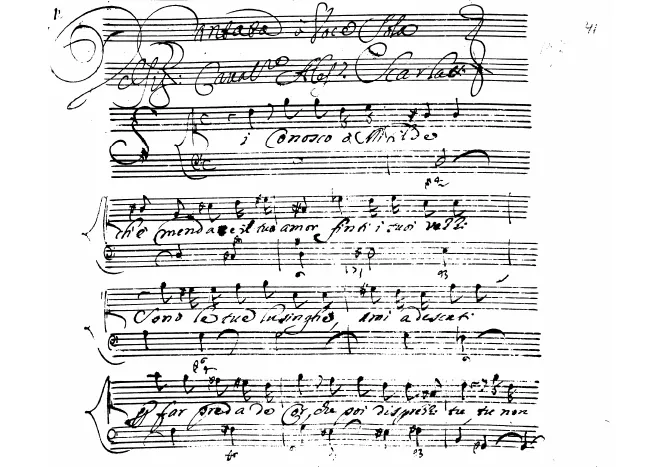 41
Cantata à Voce Sola
Del Sig. Caval.ro Aless. Scarlatti
Sì conosco ò Mirilde
che mendace è il tuo amor finti i tuoi vezzi
Sono le tue lusinghe, ami adescati
far preda de Cor, che poi disprezzi tu, tu non